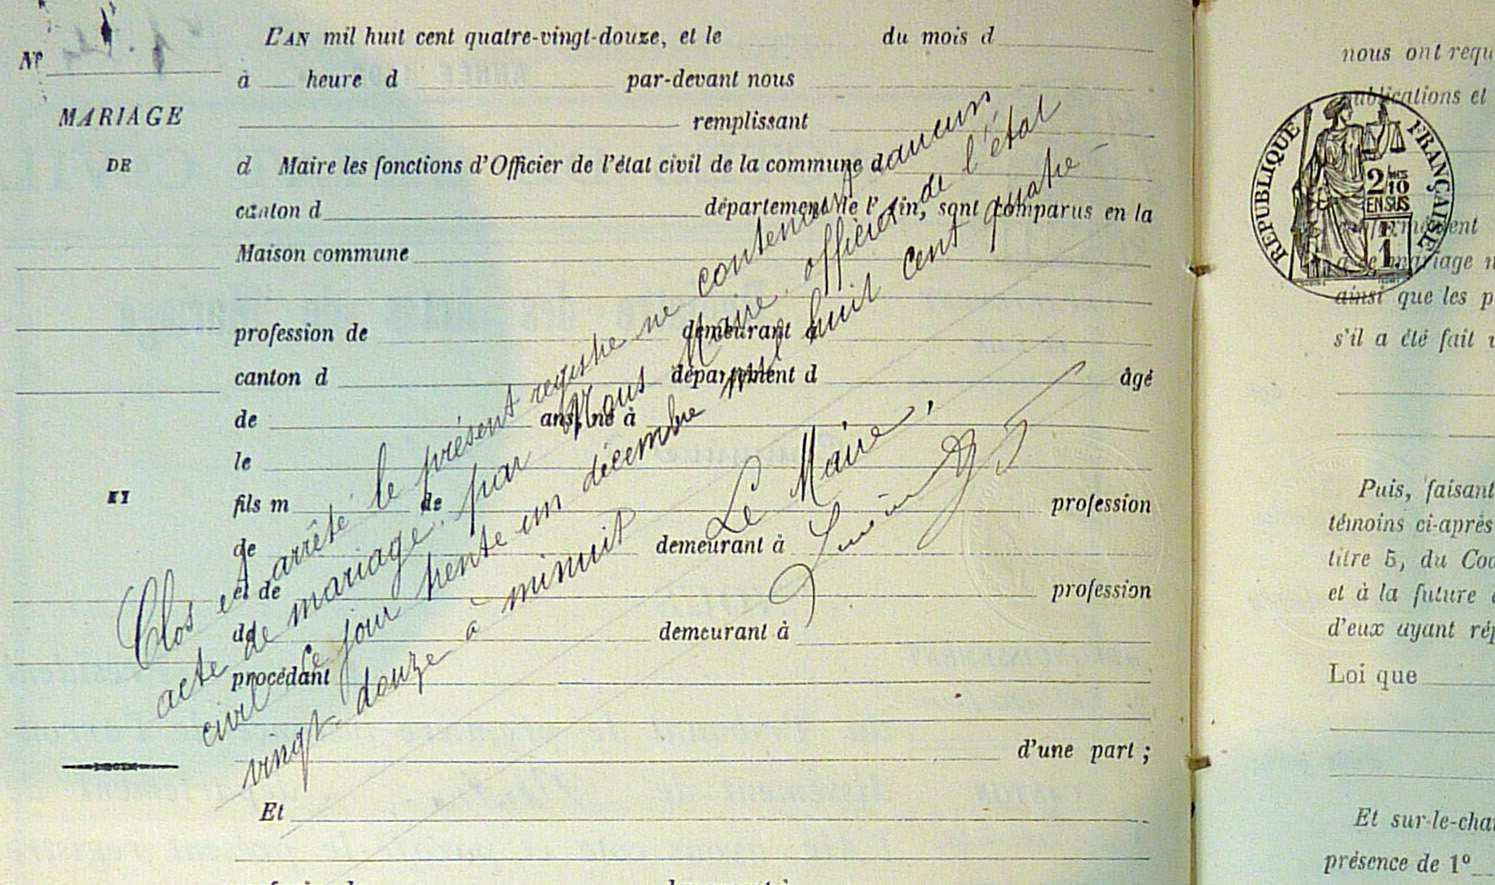 L'AN mil huit cent quatre-vingt-douze, et le du mois d
N°
à heure d par-devant nous
MARIAGE
remplissant
DE
d Maire les fonctions d'Officier de l'état civil de la commune d
canton d département de l'Ain, sont comparus en la
Maison commune
profession de demeurant à
canton d département d âgé
de ans, né à
le
ET
fils m de profession
de demeurant à
et de profession
de demeurant à
procédant
d'une part ;
Et
Clos et arrêté le présent registre ne contenant aucun
acte de mariage, par Nous Maire, officier de l'état
civil ce jour trente un décembre mil huit cent quatre-
vingt-douze à minuit
Le Maire,
nous ont requ
publications et
RÉPUBLIQUE FRANÇAISE
2/10
EN SUS
1
ce mariage n
ainsi que les p
s'il a été fait
Puis, faisant
témoins ci-après
titre 5, du Cod
et à la future
d'eux ayant rép
Loi que
Et sur-le-cha
présence de 1°